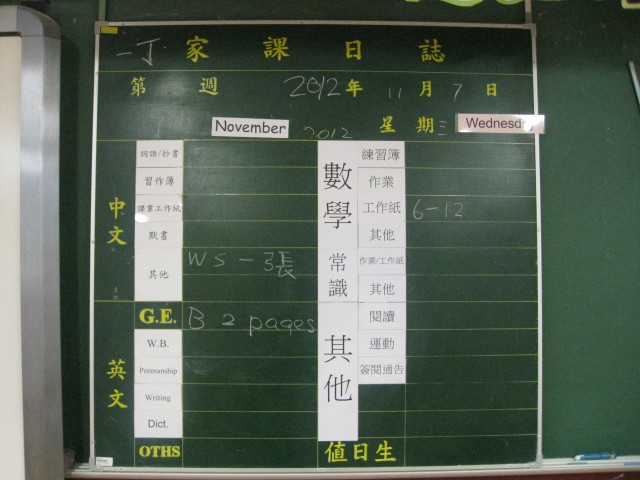 一丁 家課日誌
第 週 2012年 11月 7日
7th November 2012 星期三 Wednesday
中文
詞語/抄書
習作簿
課業工作紙
默書
其他 WS 一張
英文
G.E. B 2 pages
W.B.
Penmanship
Writing
Dict.
OTHS
數學
練習簿
作業
工作紙 6-12
其他
常識
作業/工作紙
其他
其他
閱讀
運動
簽閱通告
值日生